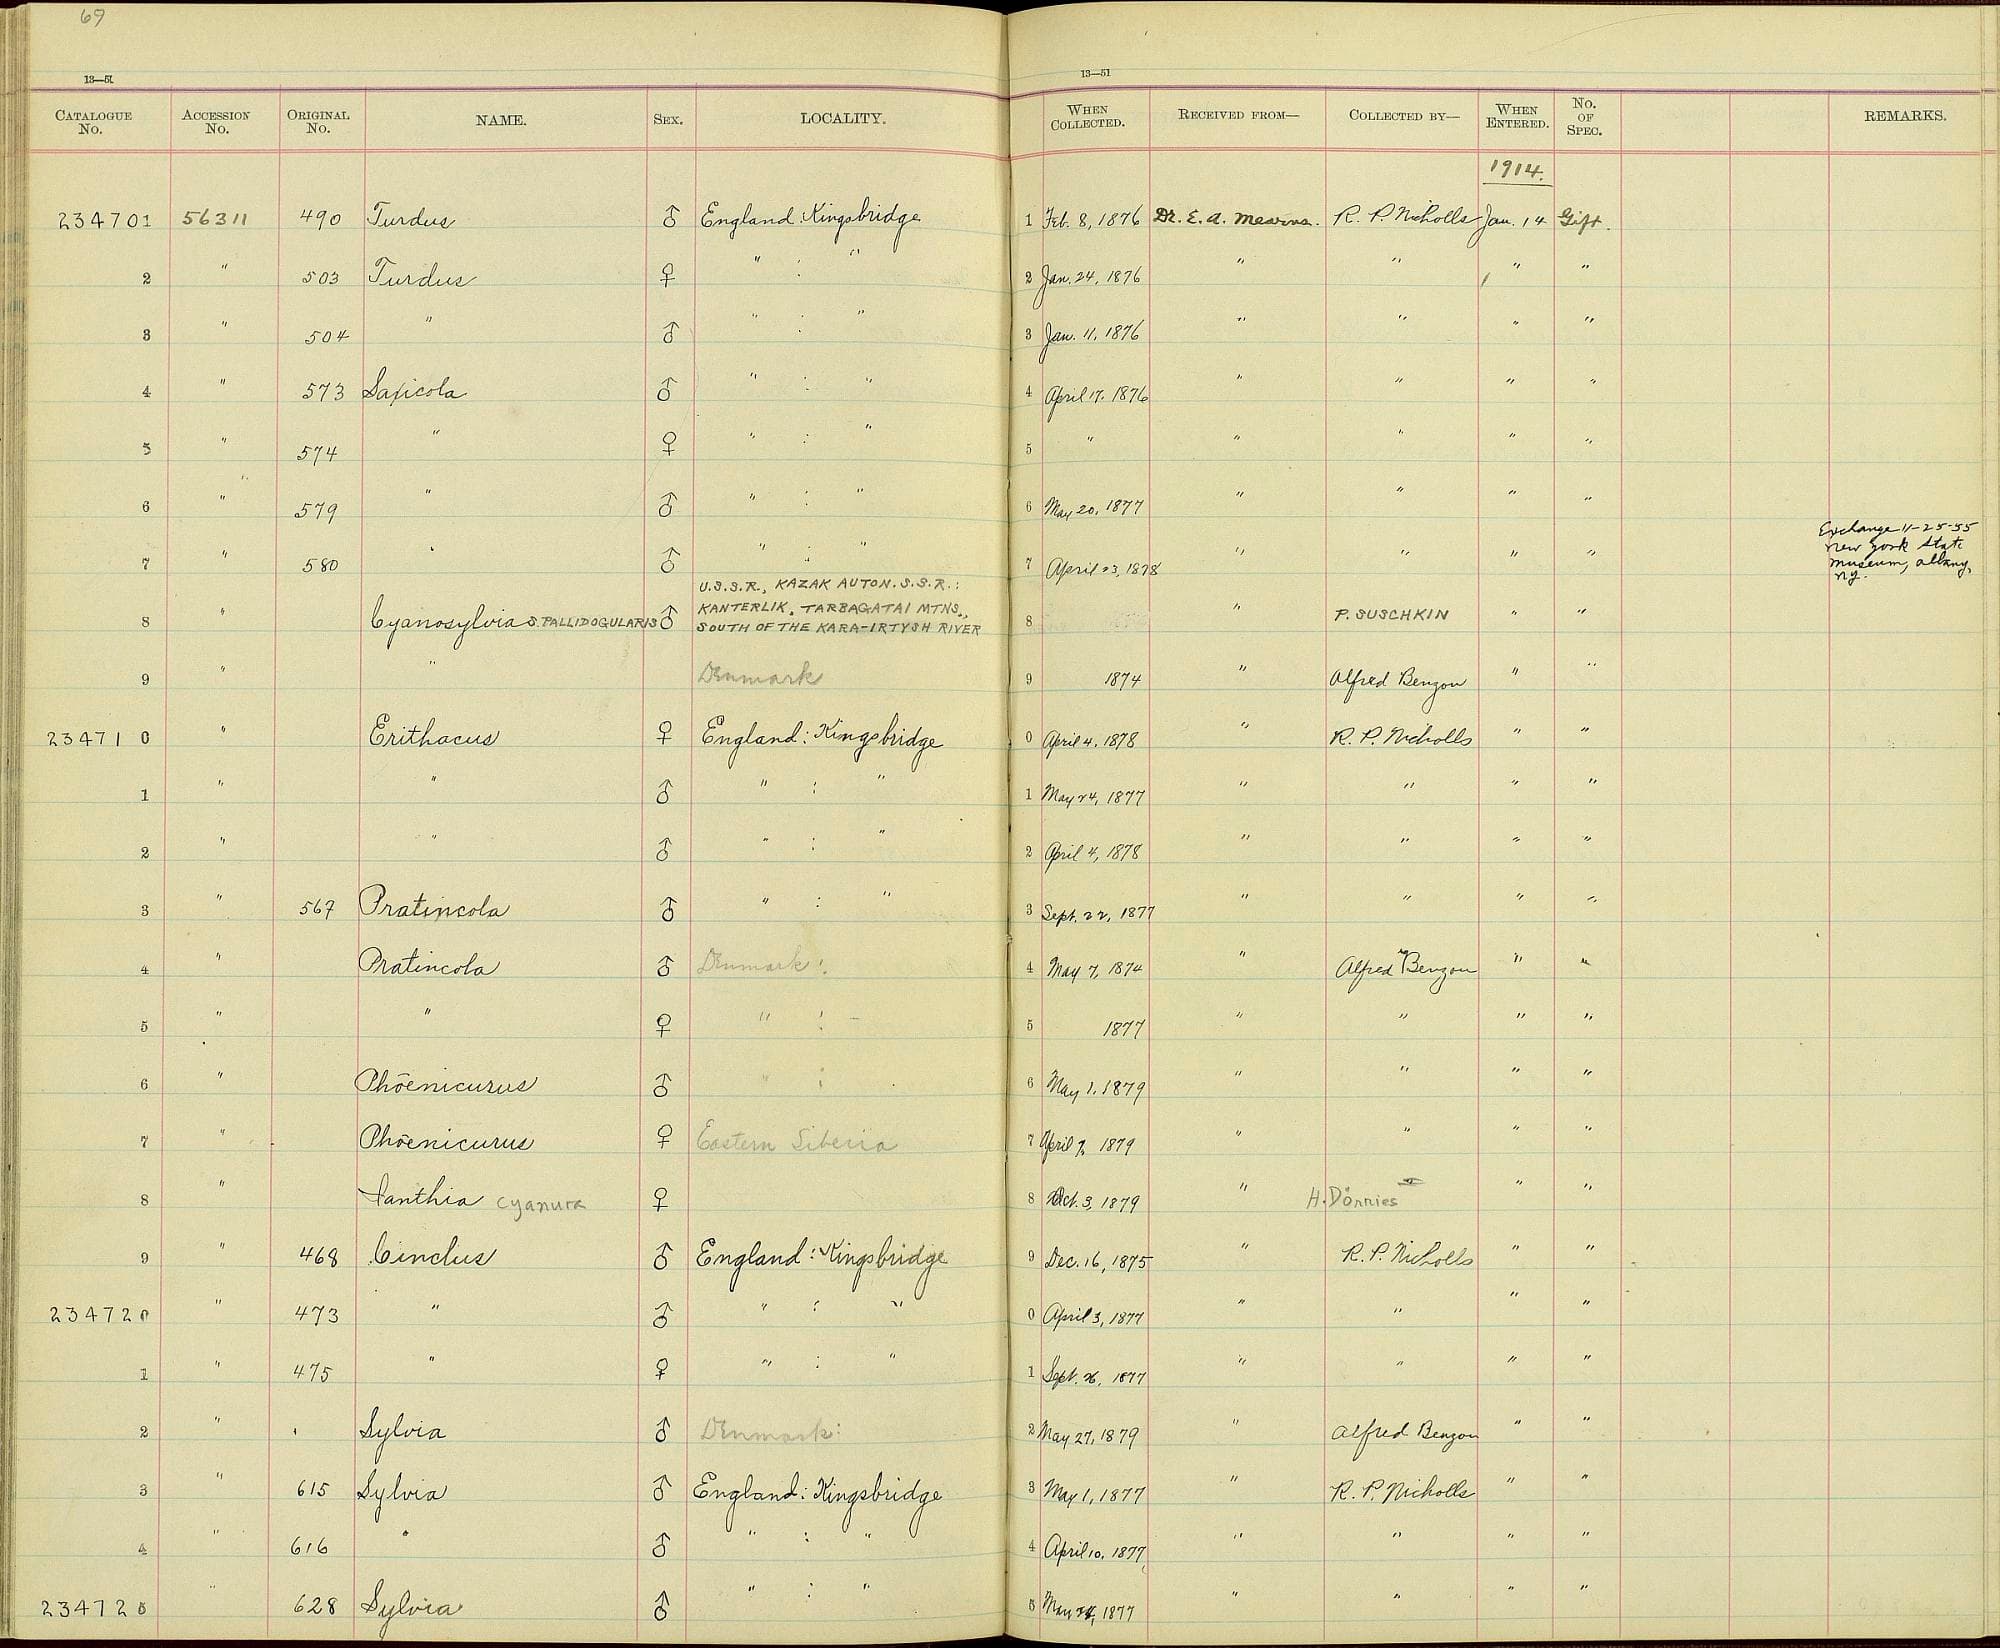 69
13—51 13—51
CATALOGUE No. ACCESSION No. ORIGINAL No. NAME. SEX. LOCALITY. WHEN COLLECTED. RECEIVED FROM— COLLECTED BY— WHEN ENTERED. No. OF SPEC. REMARKS.
1914.
234701 56311 490 Turdus ♂ England: Kingsbridge 1 Feb. 8, 1876 Dr. E. A. Mearns. R. P. Nicholls Jan. 14 Gift.
2 " 503 Turdus ♀ " : " 2 Jan. 24, 1876 " " " "
3 " 504 " ♂ " : " 3 Jan. 11, 1876 " " " "
4 " 573 Saxicola ♂ " : " 4 April 17, 1876 " " " "
5 " 574 " ♀ " : " 5 " " " " "
6 " 579 " ♂ " : " 6 May 20, 1877 " " " "
7 " 580 " ♂ " : " 7 April 23, 1878 " " " " Exchange 11-25-55
New York State
Museum, Albany,
NY.
U.S.S.R., KAZAK AUTON. S.S.R.:
KANTERLIK, TARBAGATAI MTNS.,
8 " Cyanosylvia S. PALLIDOGULARIS ♂ SOUTH OF THE KARA-IRTYSH RIVER 8 " P. SUSCHKIN " "
9 " " Denmark 9 1874 " Alfred Benzon " "
234710 " Erithacus ♀ England: Kingsbridge 0 April 4, 1878 " R. P. Nicholls " "
1 " " ♂ " : " 1 May 24, 1877 " " " "
2 " " ♂ " : " 2 April 4, 1878 " " " "
3 " 567 Pratincola ♂ " : " 3 Sept. 22, 1877 " " " "
4 " Pratincola ♂ Denmark: 4 May 7, 1874 " Alfred Benzon " "
5 " " ♀ " : 5 1877 " " " "
6 " Phoenicurus ♂ " : 6 May 1, 1879 " " " "
7 " Phoenicurus ♀ Eastern Siberia 7 April 7, 1879 " " " "
8 " Ianthia cyanura ♀ 8 Oct. 3, 1879 " H. Dörries " "
9 " 468 Cinclus ♂ England: Kingsbridge 9 Dec. 16, 1875 " R. P. Nicholls " "
234720 " 473 " ♂ " : " 0 April 3, 1877 " " " "
1 " 475 " ♀ " : " 1 Sept. 26, 1877 " " " "
2 " Sylvia ♂ Denmark: 2 May 27, 1879 " Alfred Benzon " "
3 " 615 Sylvia ♂ England: Kingsbridge 3 May 1, 1877 " R. P. Nicholls " "
4 " 616 " ♂ " : " 4 April 10, 1877 " " " "
234725 " 628 Sylvia ♂ " : " 5 May 24, 1877 " " " "